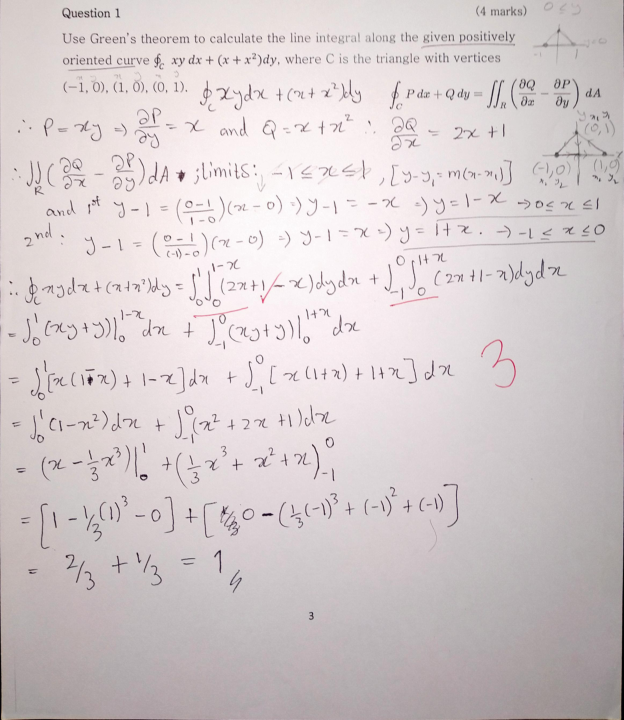 Question 1 (4 marks)
Use Green's theorem to calculate the line integral along the given positively
oriented curve ∮_C xy dx + (x + x²)dy, where C is the triangle with vertices
(−1, 0), (1, 0), (0, 1). ∮_C xydx + (x + x²)dy ∮_C P dx + Q dy = ∬_R (∂Q/∂x − ∂P/∂y) dA
∴ P = xy ⇒ ∂P/∂y = x and Q = x + x² ∴ ∂Q/∂x = 2x + 1
(0, 1)
(-1, 0) (1, 0)
∴ ∬_R (∂Q/∂x − ∂P/∂y) dA ; limits: −1 ≤ x ≤ 1, [y − y₁ = m(x − x₁)]
and 1st y − 1 = ((0−1)/(1−0))(x − 0) ⇒ y − 1 = −x ⇒ y = 1 − x → 0 ≤ x ≤ 1
2nd: y − 1 = ((0−1)/((−1)−0))(x − 0) ⇒ y − 1 = x ⇒ y = 1 + x. → −1 ≤ x ≤ 0
∴ ∮_C xydx + (x + x²)dy = ∫₀¹ ∫₀^{1−x} (2x + 1 − x)dydx + ∫₋₁⁰ ∫₀^{1+x} (2x + 1 − x)dydx
= ∫₀¹ (xy + y)|₀^{1−x} dx + ∫₋₁⁰ (xy + y)|₀^{1+x} dx
= ∫₀¹ [x(1−x) + 1 − x] dx + ∫₋₁⁰ [x(1+x) + 1 + x] dx 3
= ∫₀¹ (1 − x²)dx + ∫₋₁⁰ (x² + 2x + 1)dx
= (x − 1/3 x³)|₀¹ + (1/3 x³ + x² + x)₋₁⁰
= [1 − 1/3(1)³ − 0] + [0 − (1/3(−1)³ + (−1)² + (−1)]
= 2/3 + 1/3 = 1
3